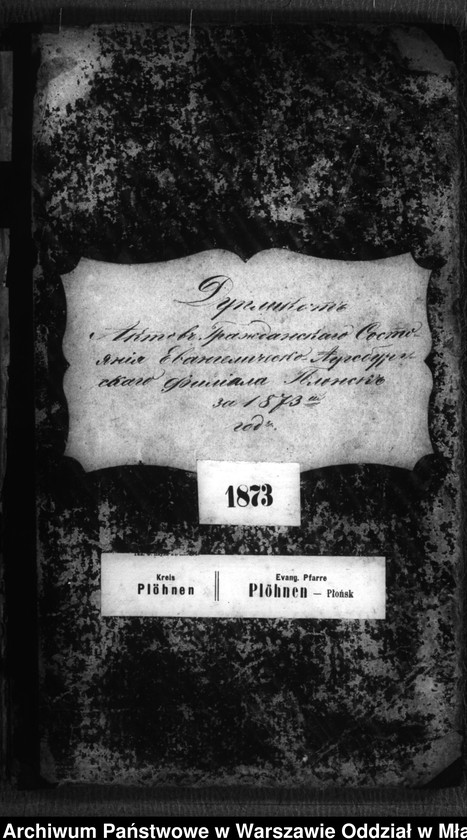 Дупликатъ
Актовъ Гражданскаго Состо-
янія Евангелическо Аугсбург-
скаго Филіала Плонскъ
за 1873 й
годъ.
1873
Kreis
Plöhnen
Evang. Pfarre
Plöhnen — Płońsk
Archiwum Państwowe w Warszawie Oddział w